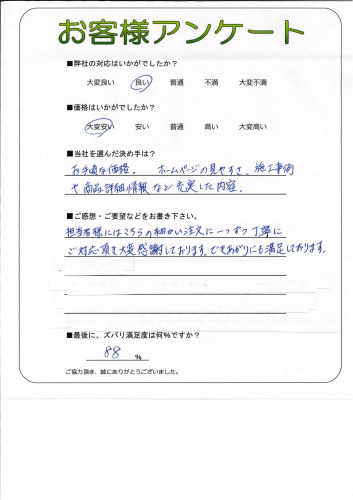 お客様アンケート
■弊社の対応はいかがでしたか？
大変良い 良い 普通 不満 大変不満
■価格はいかがでしたか？
大変安い 安い 普通 高い 大変高い
■当社を選んだ決め手は？
お手頃な価格。 ホームページの見やすさ、施工事例
や商品詳細情報など充実した内容。
■ご感想・ご要望などをお書き下さい。
担当者様にはこちらの細かい注文に一つずつ丁寧に
ご対応頂き大変感謝しております。できあがりにも満足しております。
■最後に、ズバリ満足度は何％ですか？
88 ％
ご協力頂き、誠にありがとうございました。